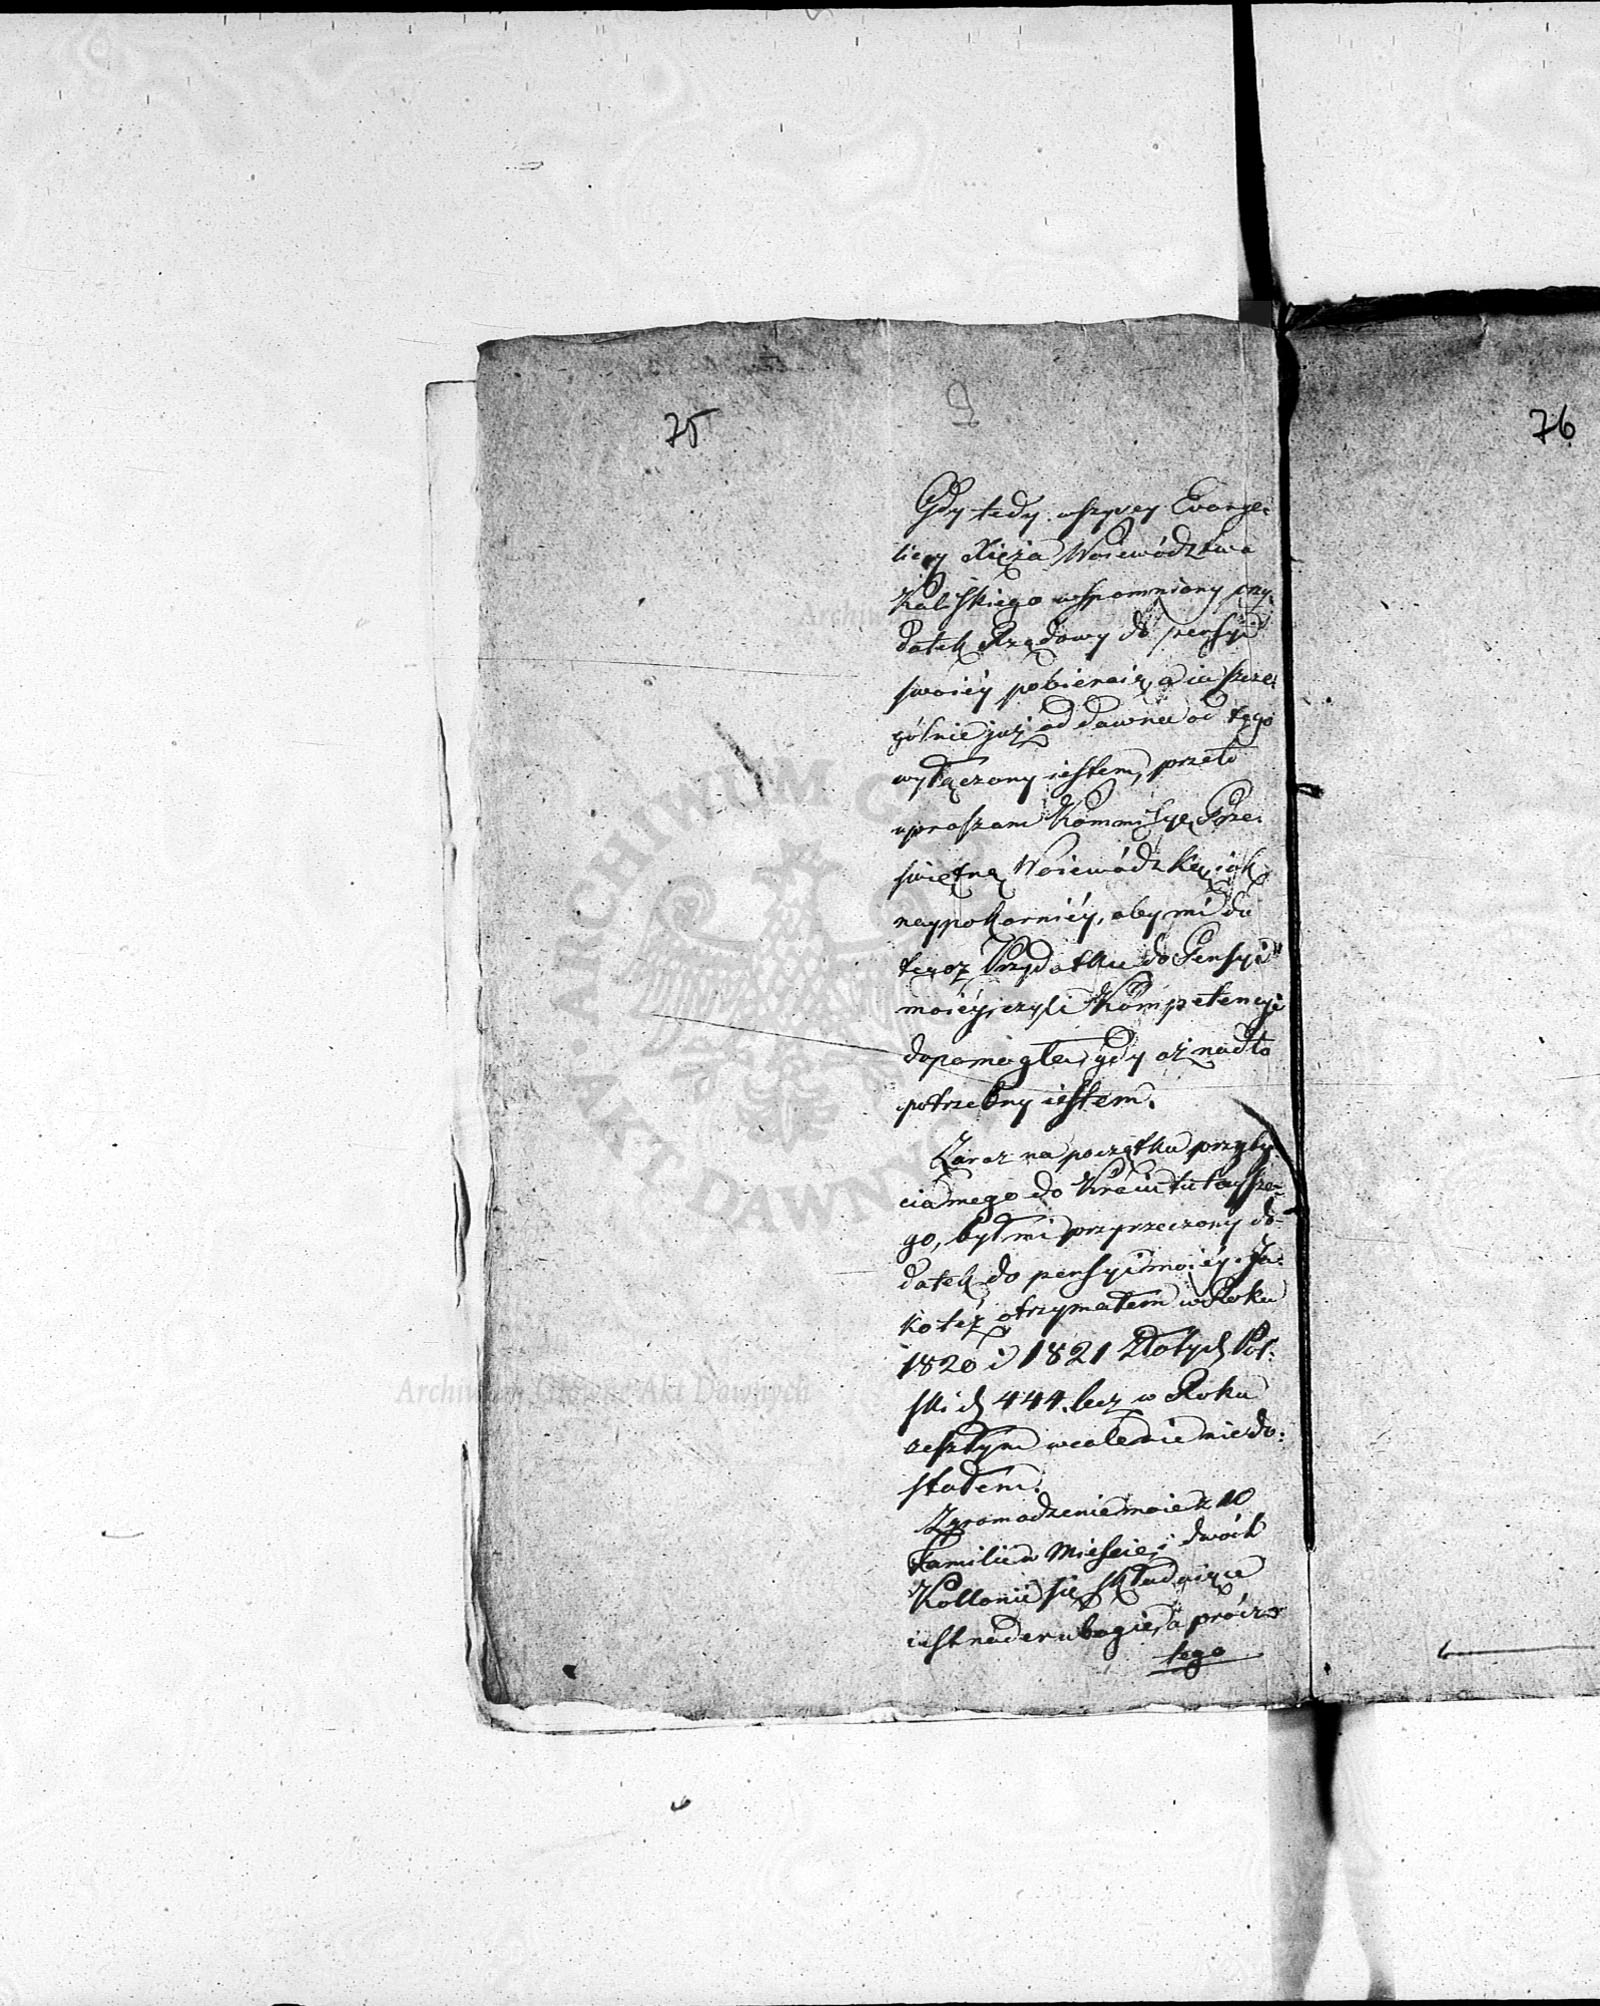 75
9
76
Gdy tedy wszyscy Evange:
liccy Xięża Woiewództwa
Kaliskiego wspomniony przy:
datek Rządowy do pensyi
swoiéy pobieraią, a ia szcze:
gólnie już od dawna od tego
wyłączony iestem, przeto
upraszam Kommissyę Prze:
świętną Woiewódzką iak
naypokorniéy, aby mi do
teraz Przydatku do Pensyi
moiéy, czyli Kompetencyi
dopomogła, gdy aż nadto
potrzebny iestem.
Zaraz na początku przyby:
cia mego do Kraiu tutaysze:
go, był mi przyrzeczony do:
datek do pensyi moiéy. Ja:
koteż otrzymałem w Roku
1820 i 1821 Złotych Pol:
skich 444. lecz w Roku
zeszłym wcale nie niedo:
stałem.
Zgromadzenie moie z 10
Familii w Mieście i dwóch
Kollonii się składaiące
iest nader ubogie, a prócz
tego
Archiwum Główne Akt Dawnych
ARCHIWUM GŁÓWNE AKT DAWNYCH
Archiwum Główne Akt Dawnych